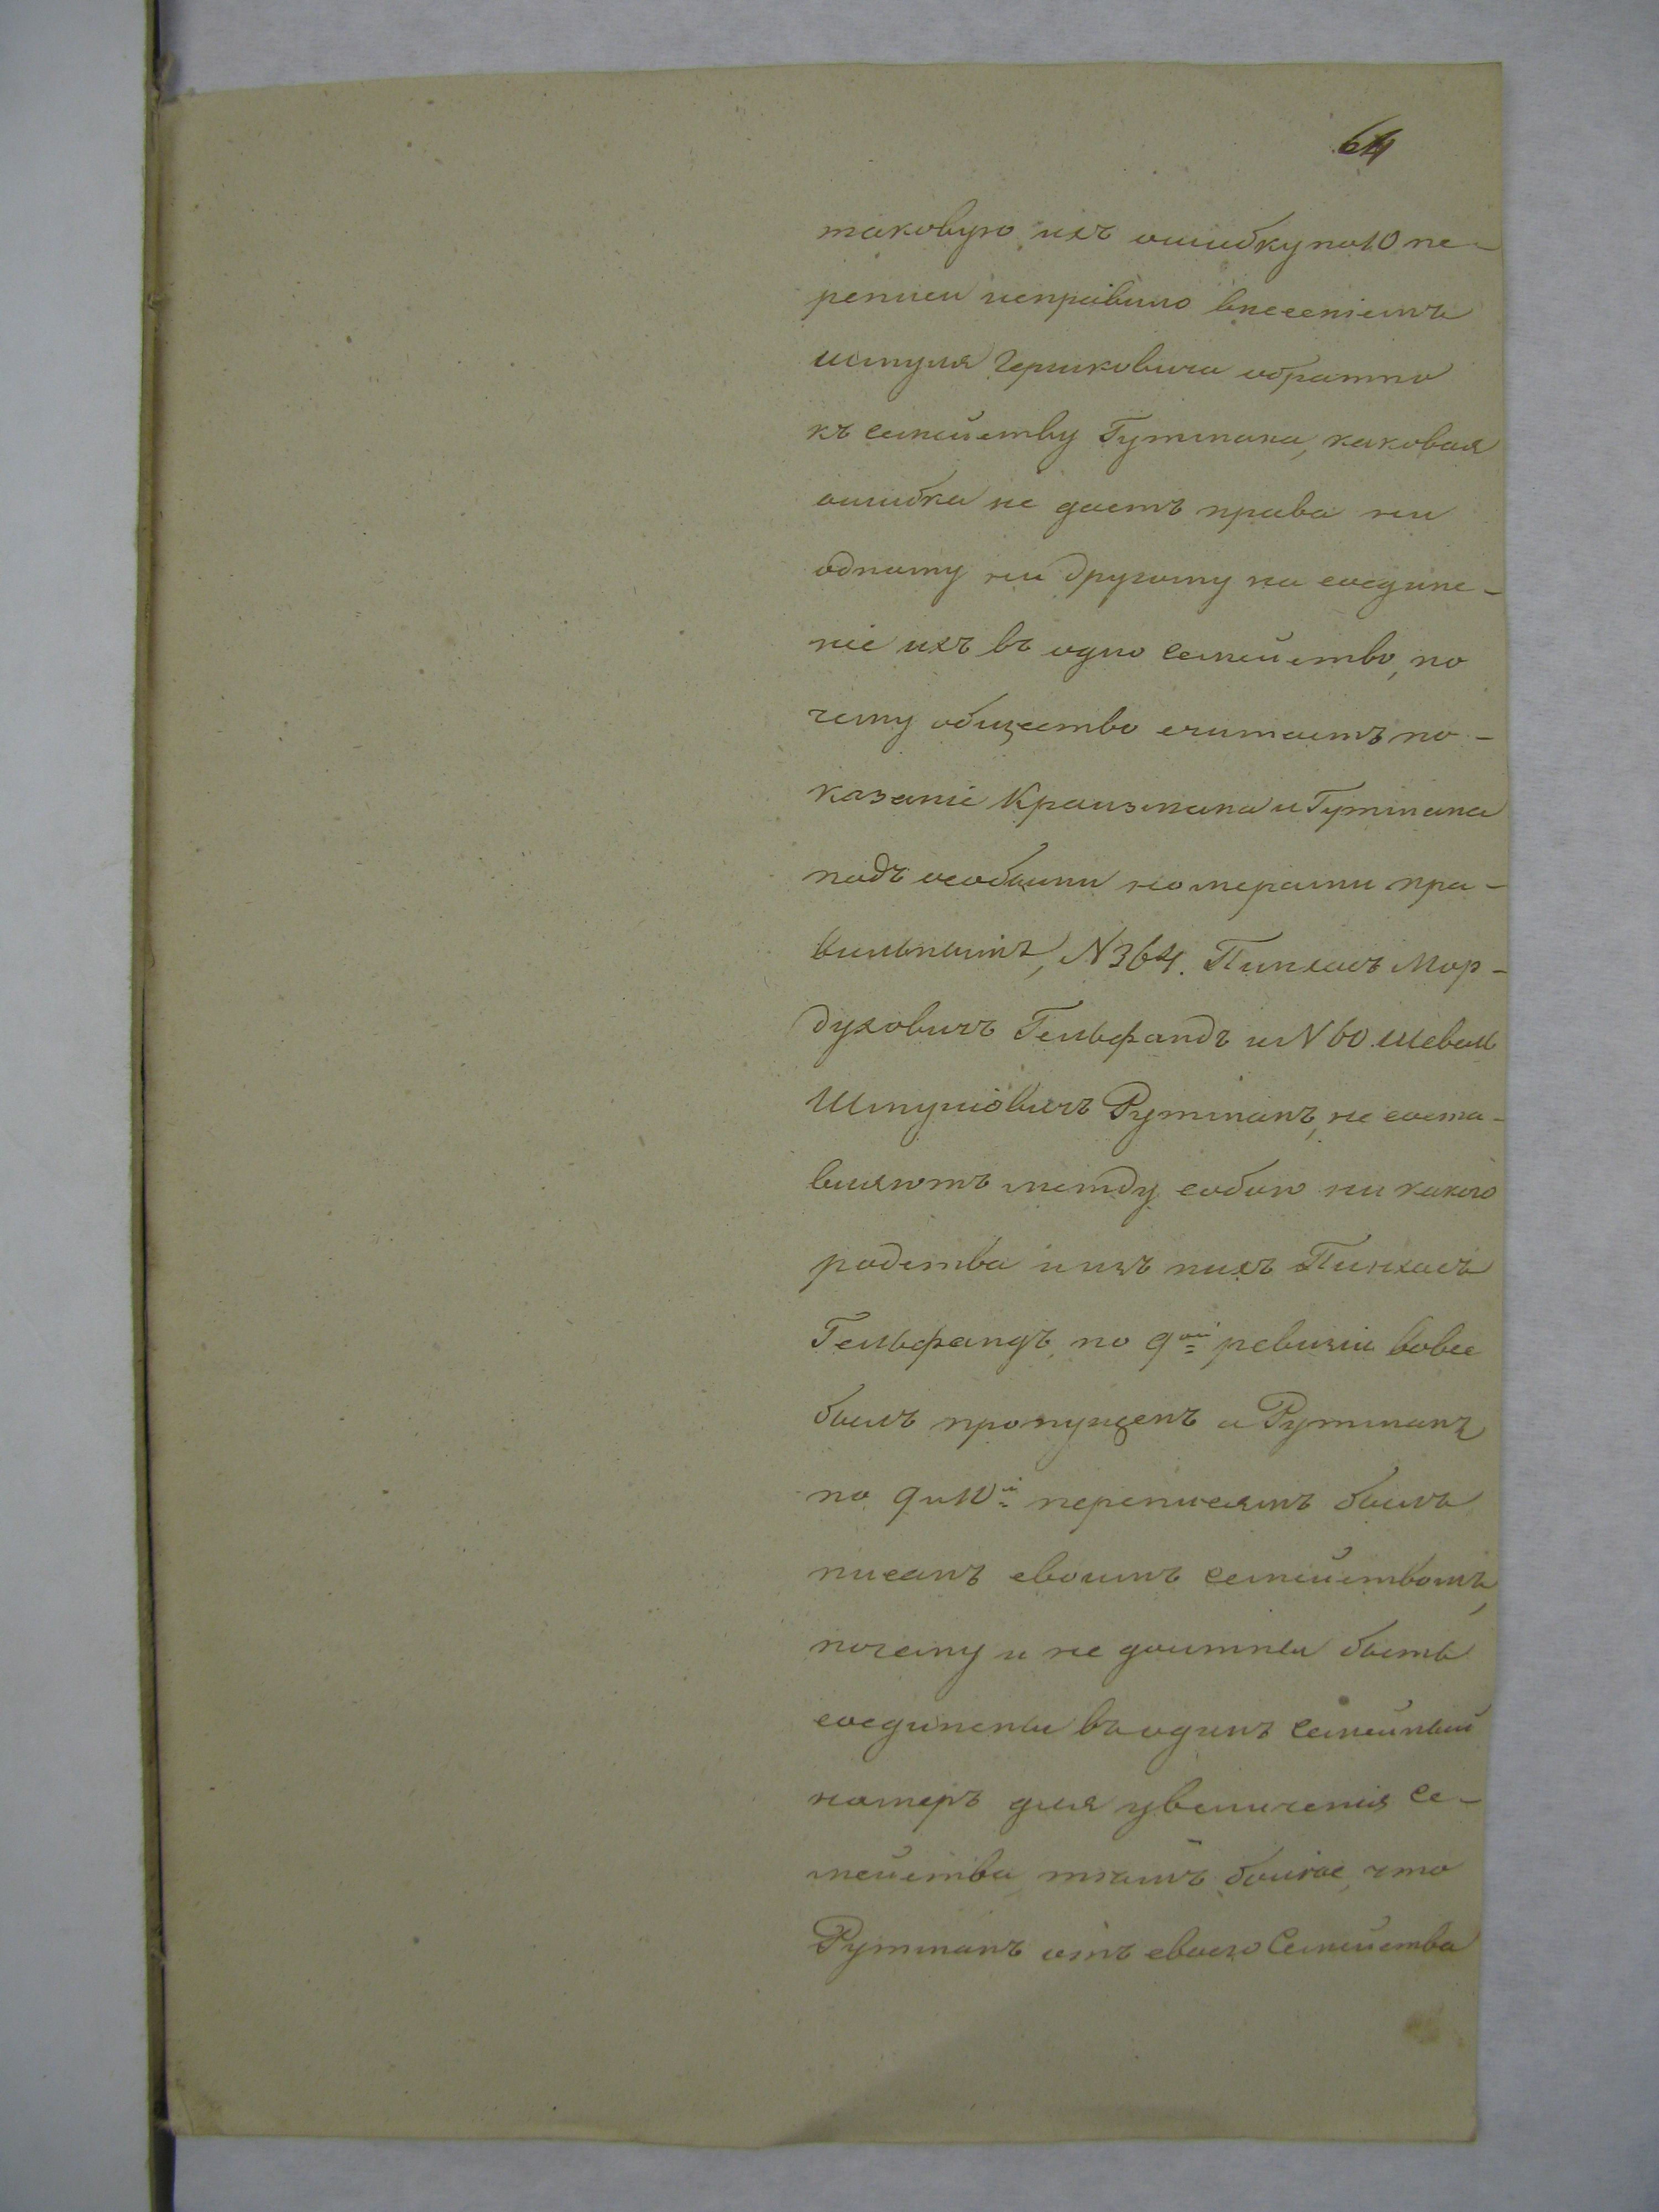 64
таковую ихъ ошибку по 10 пе-
реписи исправило внесеніемъ
Шмуля Гершковича обратно
къ семейству Гутмана, каковая
ошибка не даетъ права ни
одному ни другому на соедине-
ніе ихъ въ одно семейство, по
чему общество считаетъ по-
казаніе Краизмана и Гутмана
подъ особыми номерами пра-
вильнымъ, N 364. Пинхасъ Мор-
духовичъ Гельфандъ и N 60 Шевель
Шмуйловичъ Рутманъ, не соста-
вляютъ между собою ни какого
родства и изъ нихъ Пинхасъ
Гельфандъ, по 9ой ревизіи вовсе
былъ пропущенъ а Рутманъ
по 9 и 10й переписямъ былъ
писанъ своимъ семействомъ,
почему и не должны быть
соединены въ одинъ семейный
номеръ для увеличенія се-
мейства тѣмъ болѣе, что
Рутманъ отъ своего Семейства